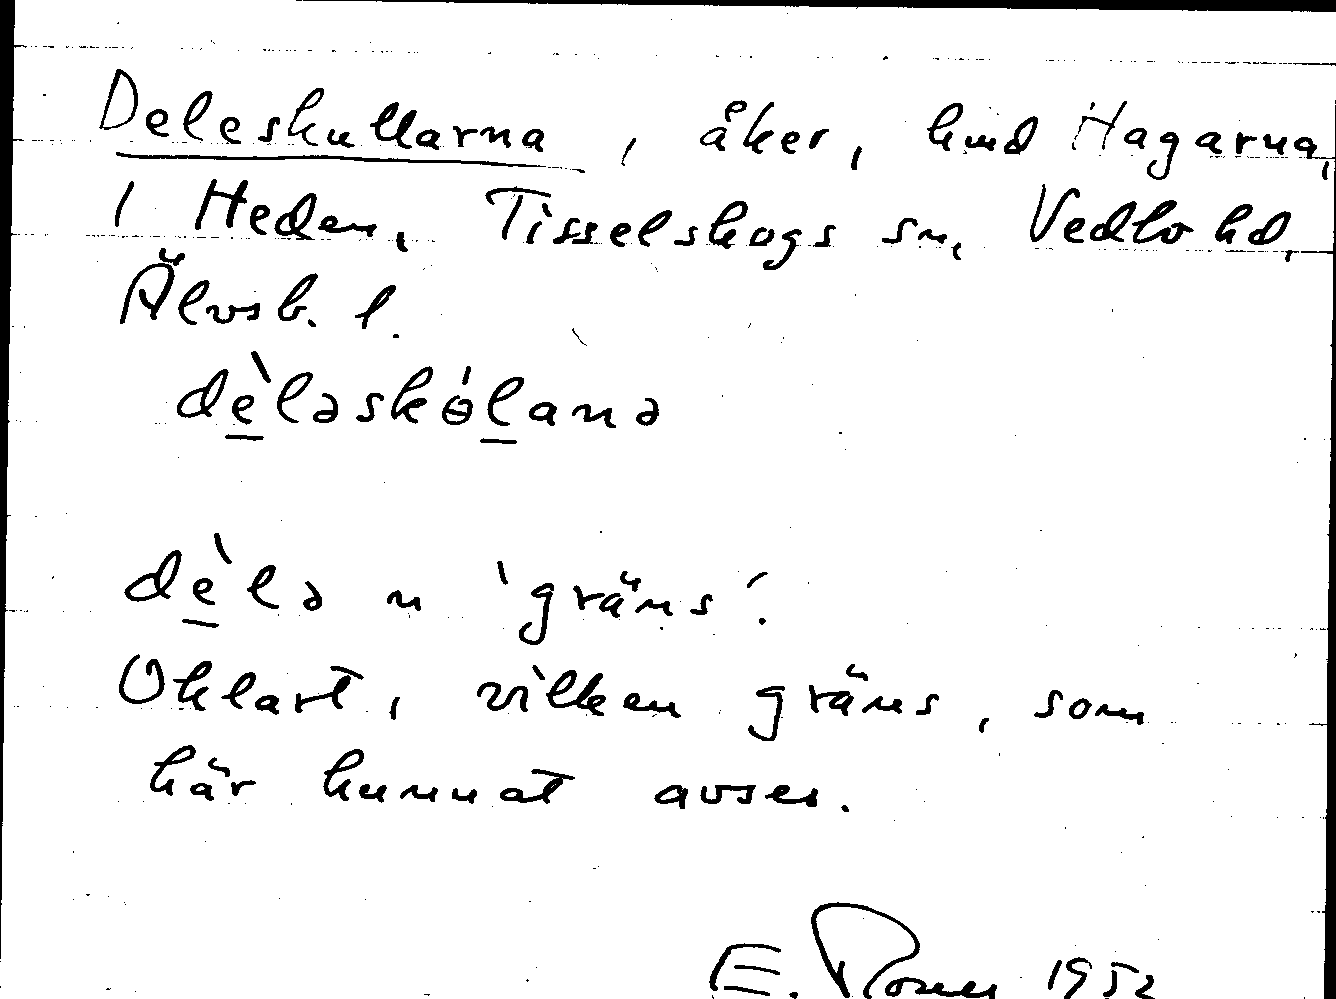 Deleskullarna, åker, hmd Hagarna,
1 Heden, Tisselskogs sn, Vedbo hd,
Älvsb. l.
dè̱ləskö́ḻanə
dè̱lə n 'gräns'.
Oklart, vilken gräns, som
här kunnat avses.
E. Rosen 1952